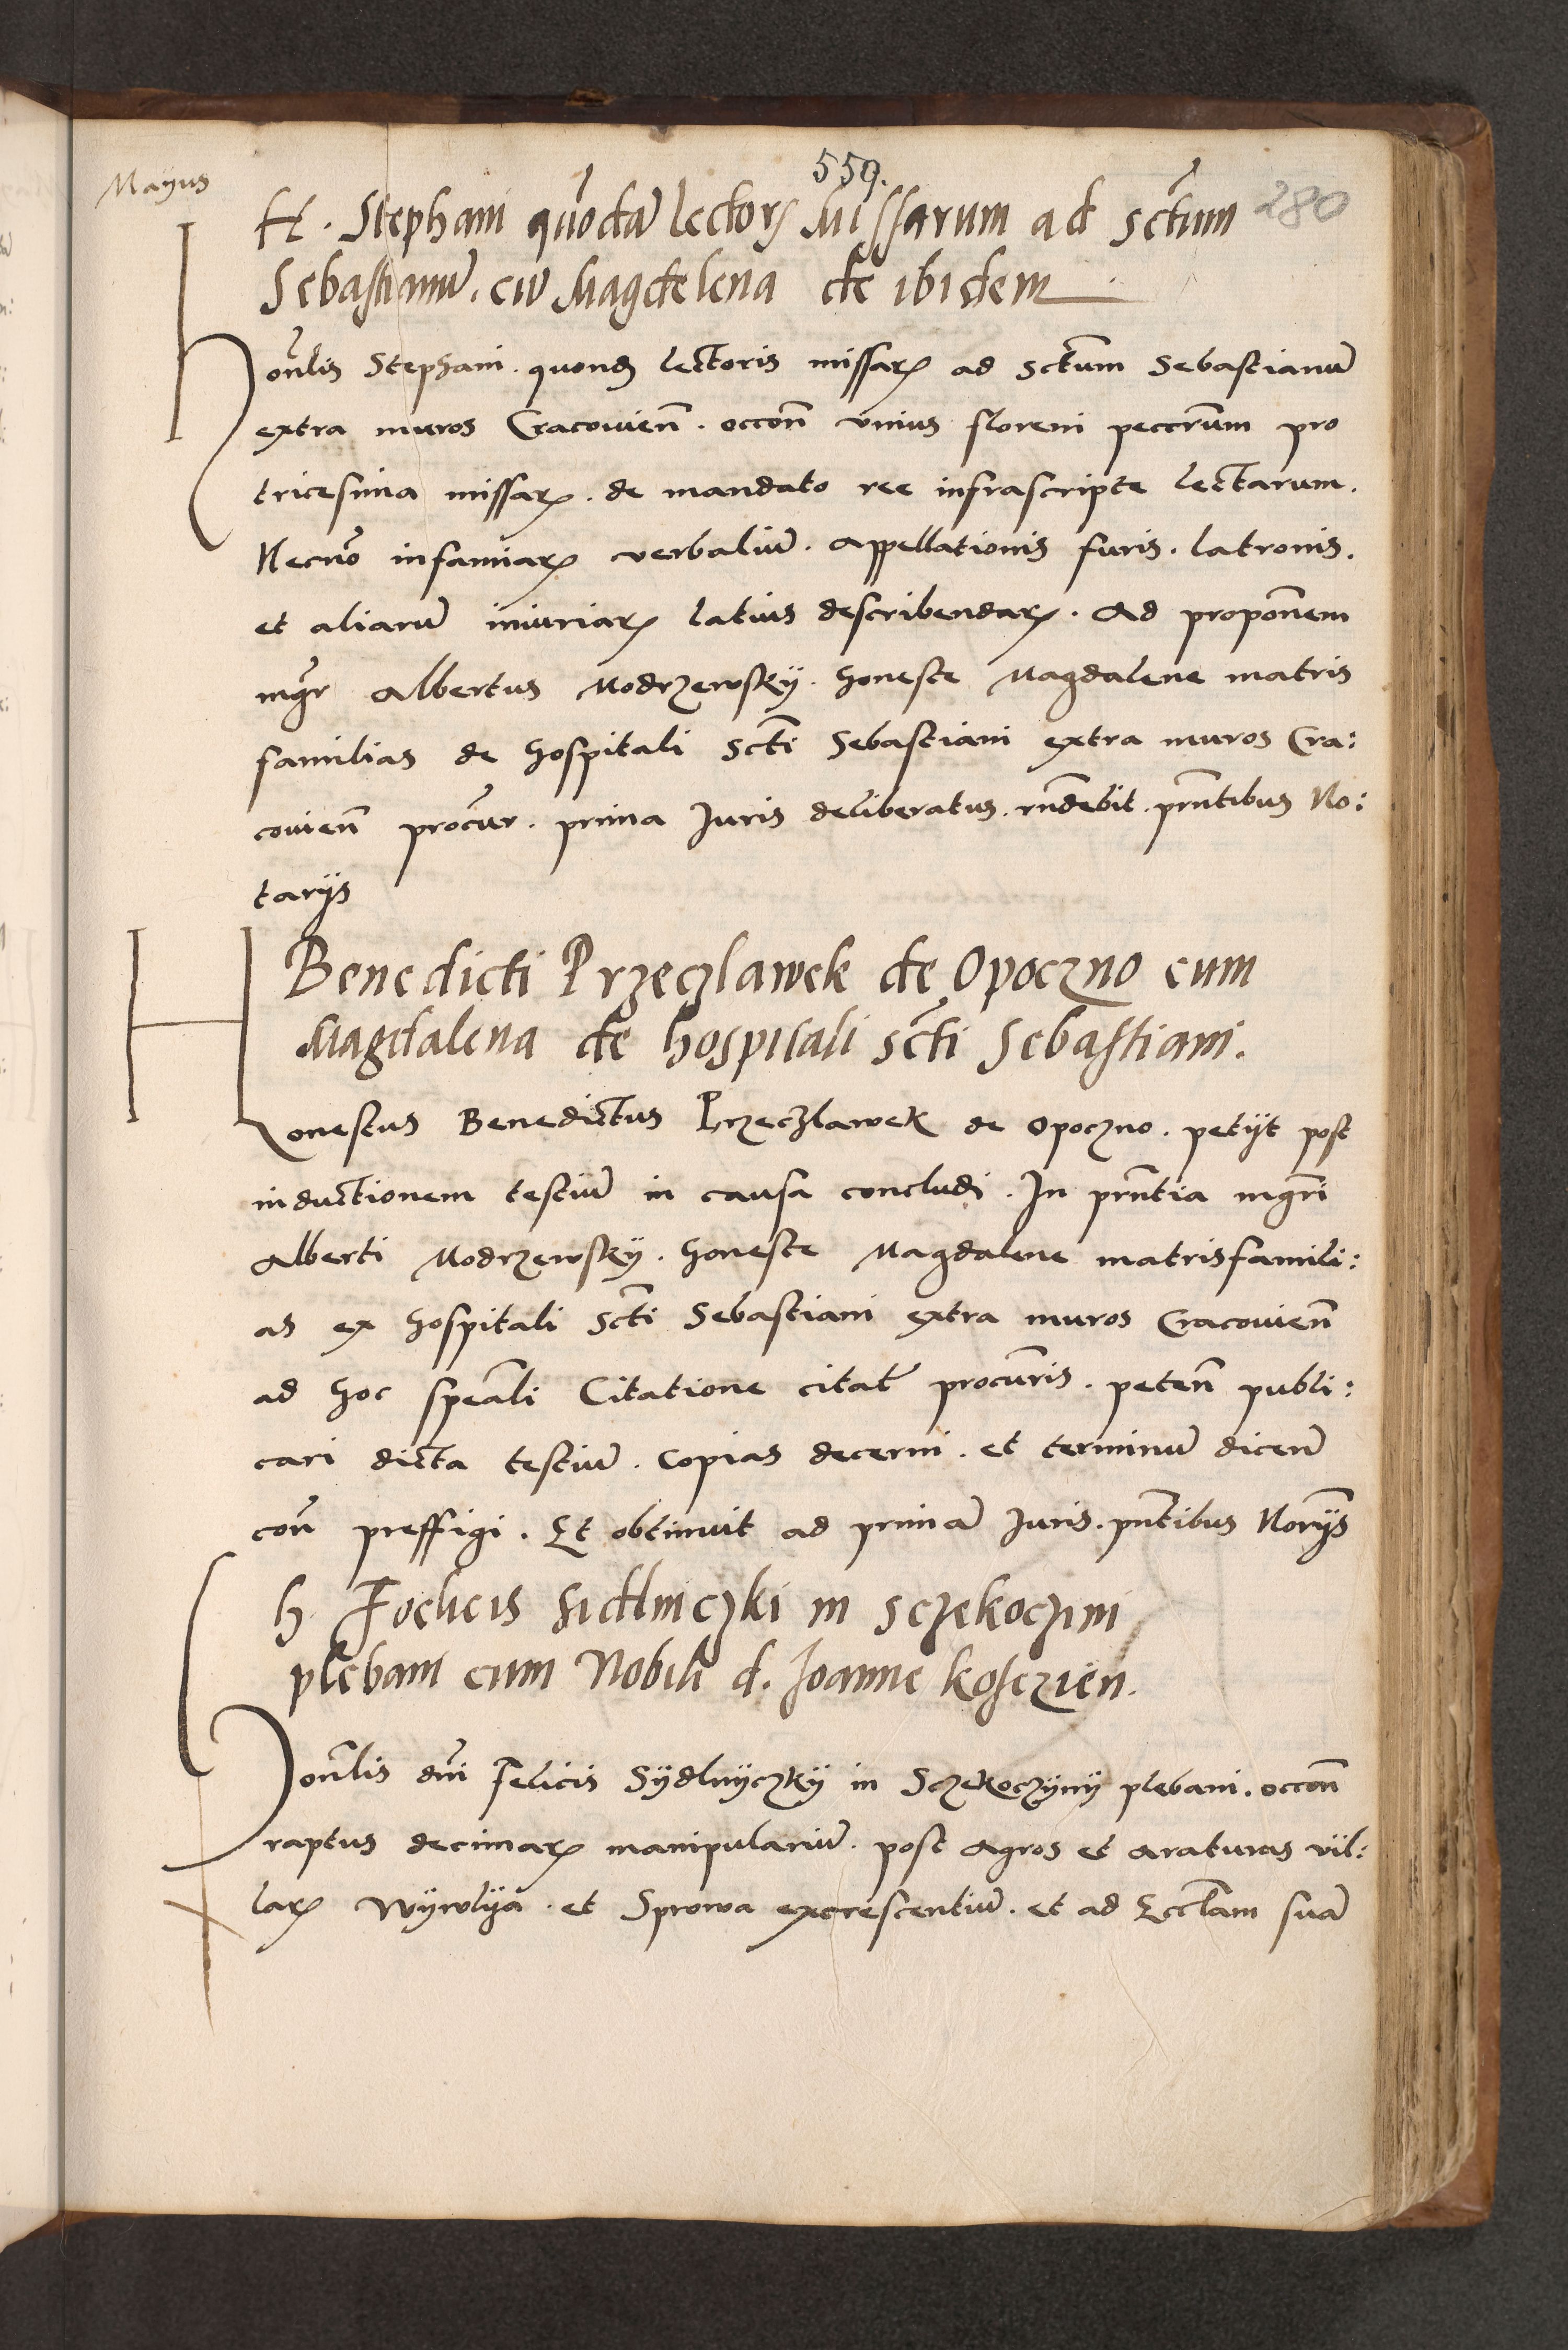 Mayus
559.
280
H. Stephani quōdā lectorꝭ Missarum ad sctūm
Sebastianū. cū Magdelena de ibidem
Honᷓlis Stephani quondꝫ lectoris missarꝝ ad sctūm Sebastianū
extra muros Cracovien̄. occon̄ vnius floreni peccrūm pro
tricesima missarꝝ. de mandato ree infrascripte lectarum.
Necnō infamiarꝝ verbaliū. appellationis furis. latronis.
et aliarū iniuriarꝝ latius describendarꝝ. Ad proponēm
mgr̄ Albertus Modrzewsky. honeste Magdalene matris
familias de hospitali Sctī Sebastiani extra muros Cra:
covien̄ procūr. prima Juris deliberatus. rn̄debit. prn̄tibus No:
tarijs
Benedicti Przeczlawek de Opoczno cum
Magdalena de hospitali sctī Sebastiani.
Honestus Benedictus Przeczlawek de Opoczno. petijt post
inductionem testiū in causa concludi. In prn̄tia mgr̄i
Alberti Modrzewsky. honeste Magdalene matrisfamili:
as ex hospitali Sctī Sebastiani extra muros Cracovien̄
ad hoc speāli Citatione citat̄ procur̄is. peten̄ publi:
cari dicta testiū. Copias decerni. et terminū dicen̄
con̄ preffigi. Et obtinuit ad primā Juris. pn̄tibus Norijs̄
h. Foelicis Sidlniczki in Sczekoczini
plebani cum Nobili d. Joanne Kosczien.
Honᷓlis dn̄i Felicis Sydlnyczky in Sczekoczyny plebani. occon̄
raptus decimarꝝ manipulariū. post agros et araturas vil:
larꝝ Wywlya. et Sprowa excrescentiū. et ad Ecclā̄m suā